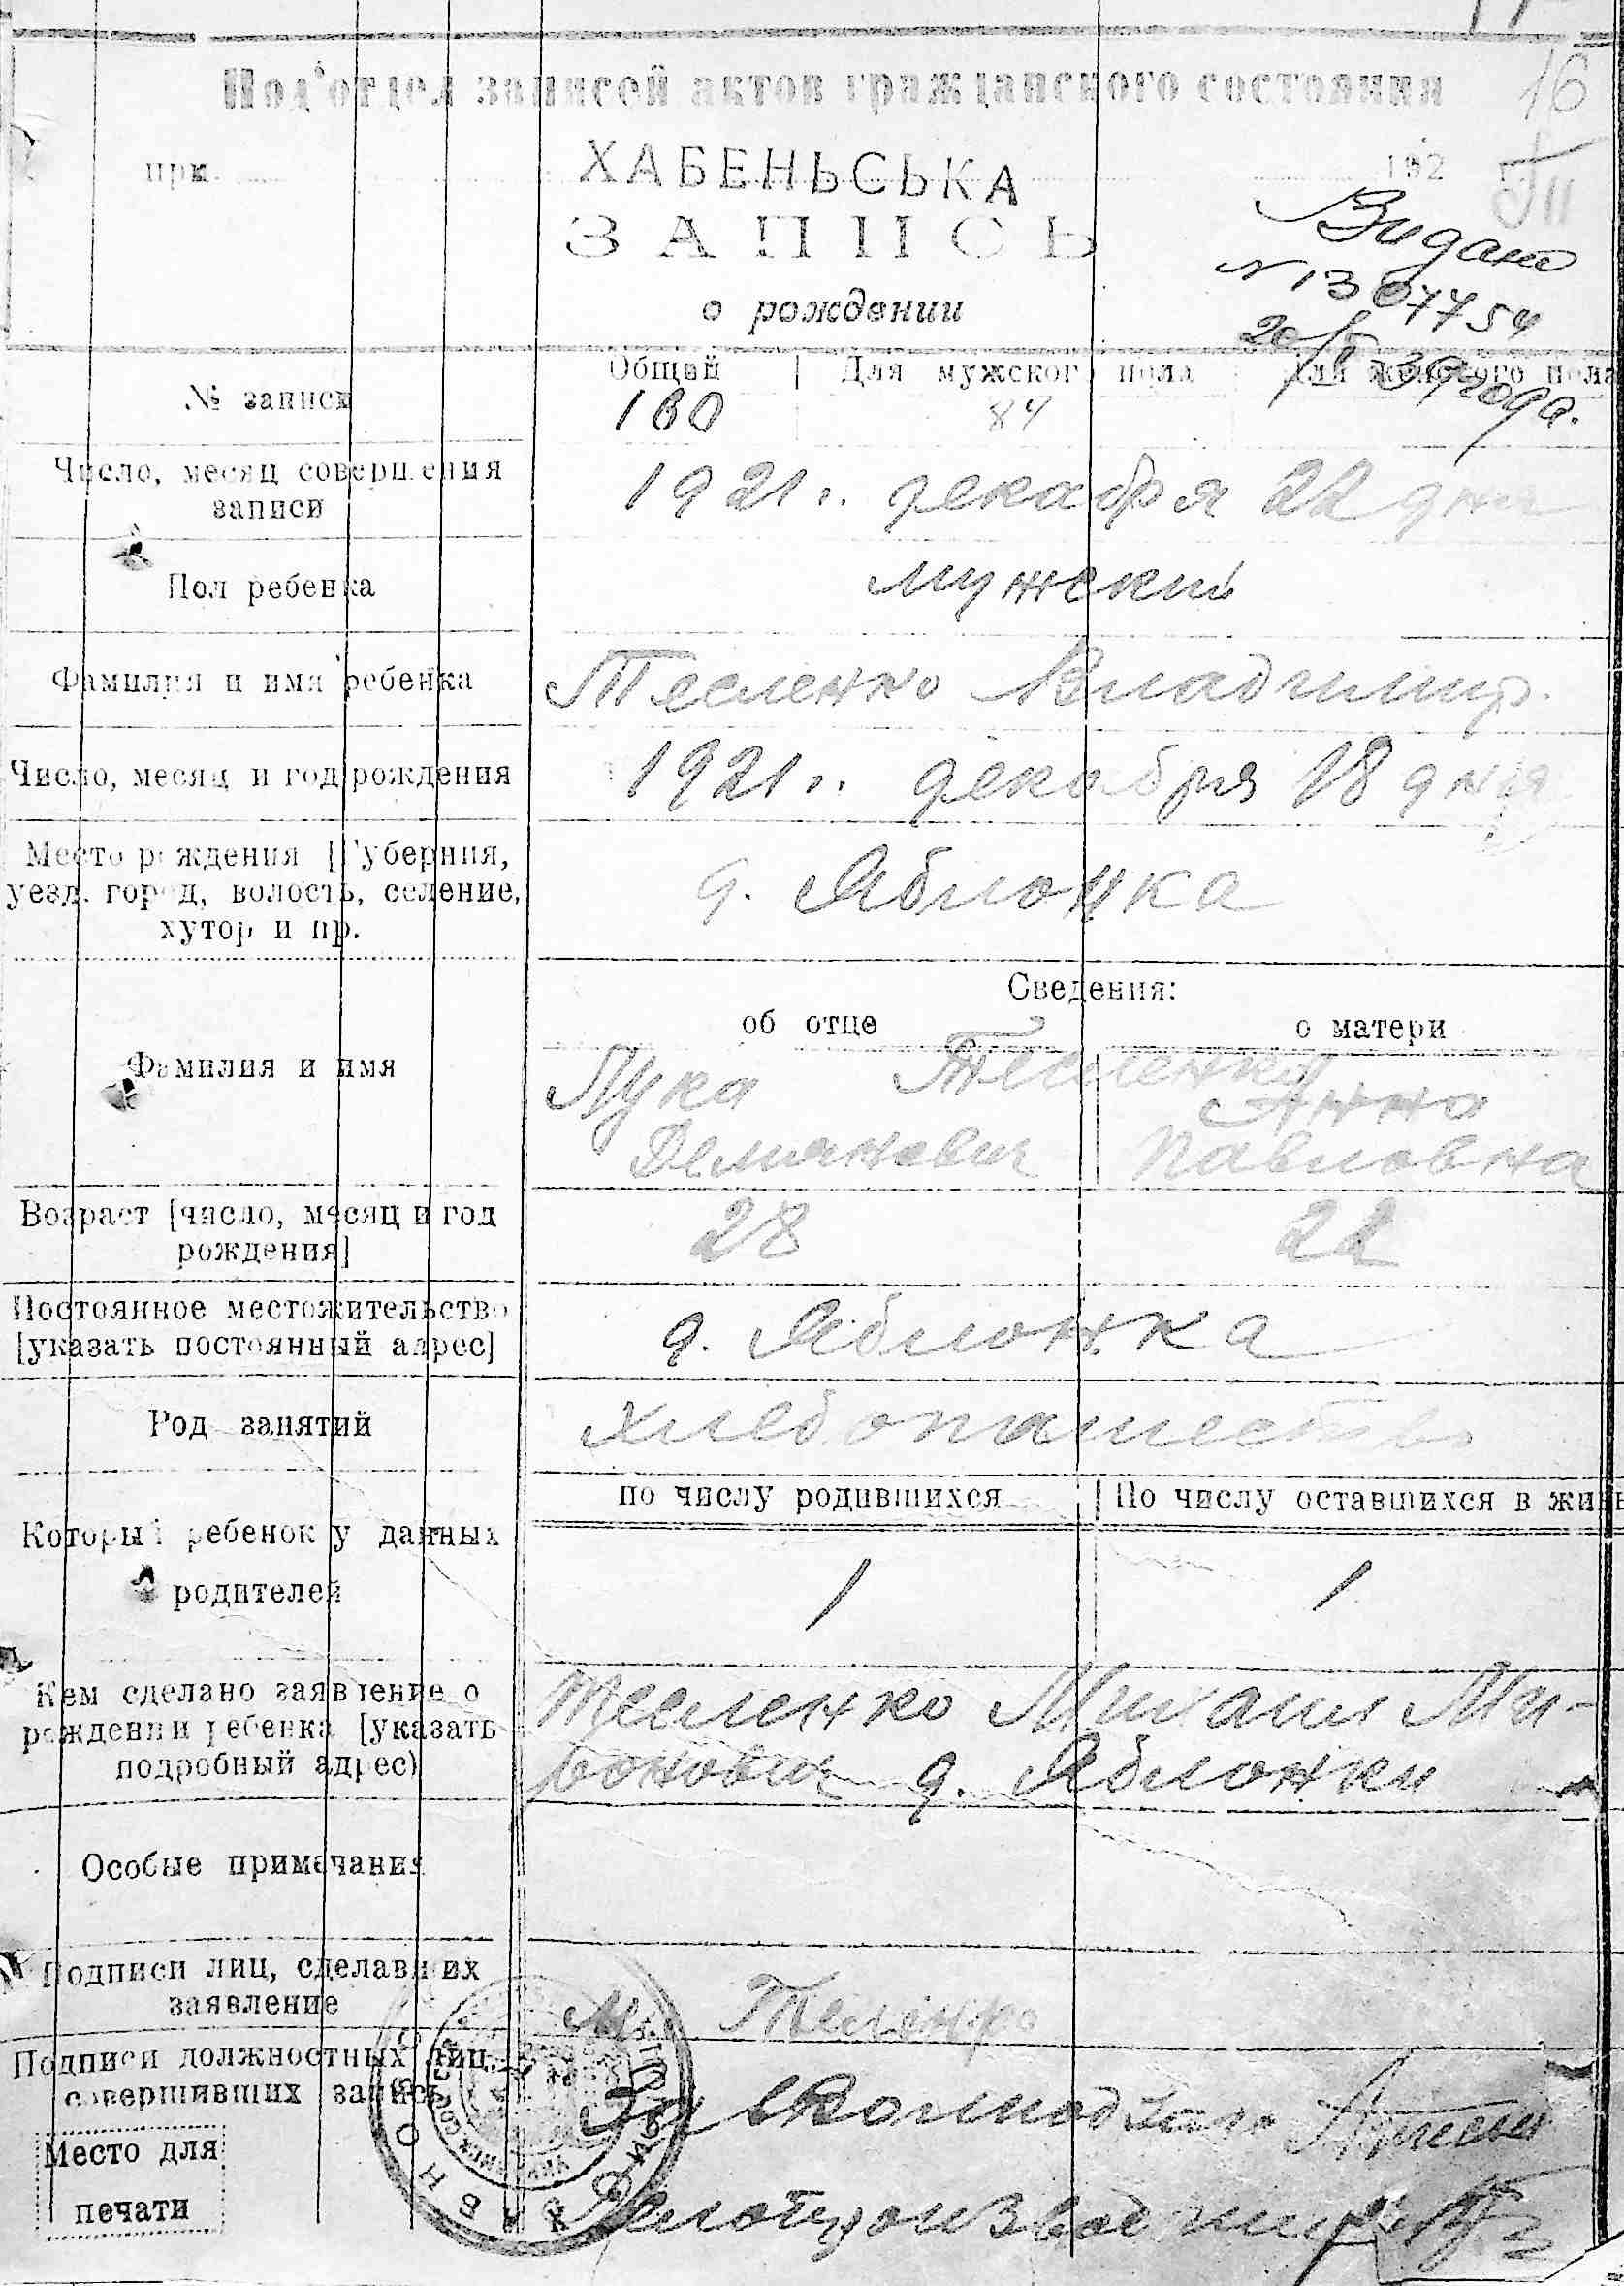 16
Под'отдел записей актов гражданского состояния
при 192
ХАБЕНЬСЬКА
ЗАПИСЬ
о рождении
Видано
N 1307754
20/ 39 года.
№ записи
Общей | Для мужского пола Для женского пола
160 84
Число, месяц совершения
записи
1921 г. декабря 22 дня
Пол ребенка
мужский
Фамилия и имя ребенка
Тесленко Владимир.
Число, месяц и год рождения
1921 г. декабря 18 дня
Место рождения [Губерния,
уезд. город, волость, селение,
хутор и пр.
д. Яблонка
Сведения:
об отце о матери
Фамилия и имя
Тесленко
Лука Анна
Демянович Павловна
Возраст [число, месяц и год
рождения]
28 22
Постоянное местожительство
[указать постоянный адрес]
д. Яблонка
Род занятий
хлебопашество
по числу родившихся | По числу оставшихся в жив
Который ребенок у данных
родителей
1 1
Кем сделано заявление о
рождении ребенка [указать
подробный адрес)
Тесленко Михаил Ми-
ронович д. Яблонки
Особые примечания
Подписи лиц, сделавших
заявление
М. Тесленко
Подписи должностных лиц,
совершивших запись
Зав
Место для
печати
Делопроизводитель